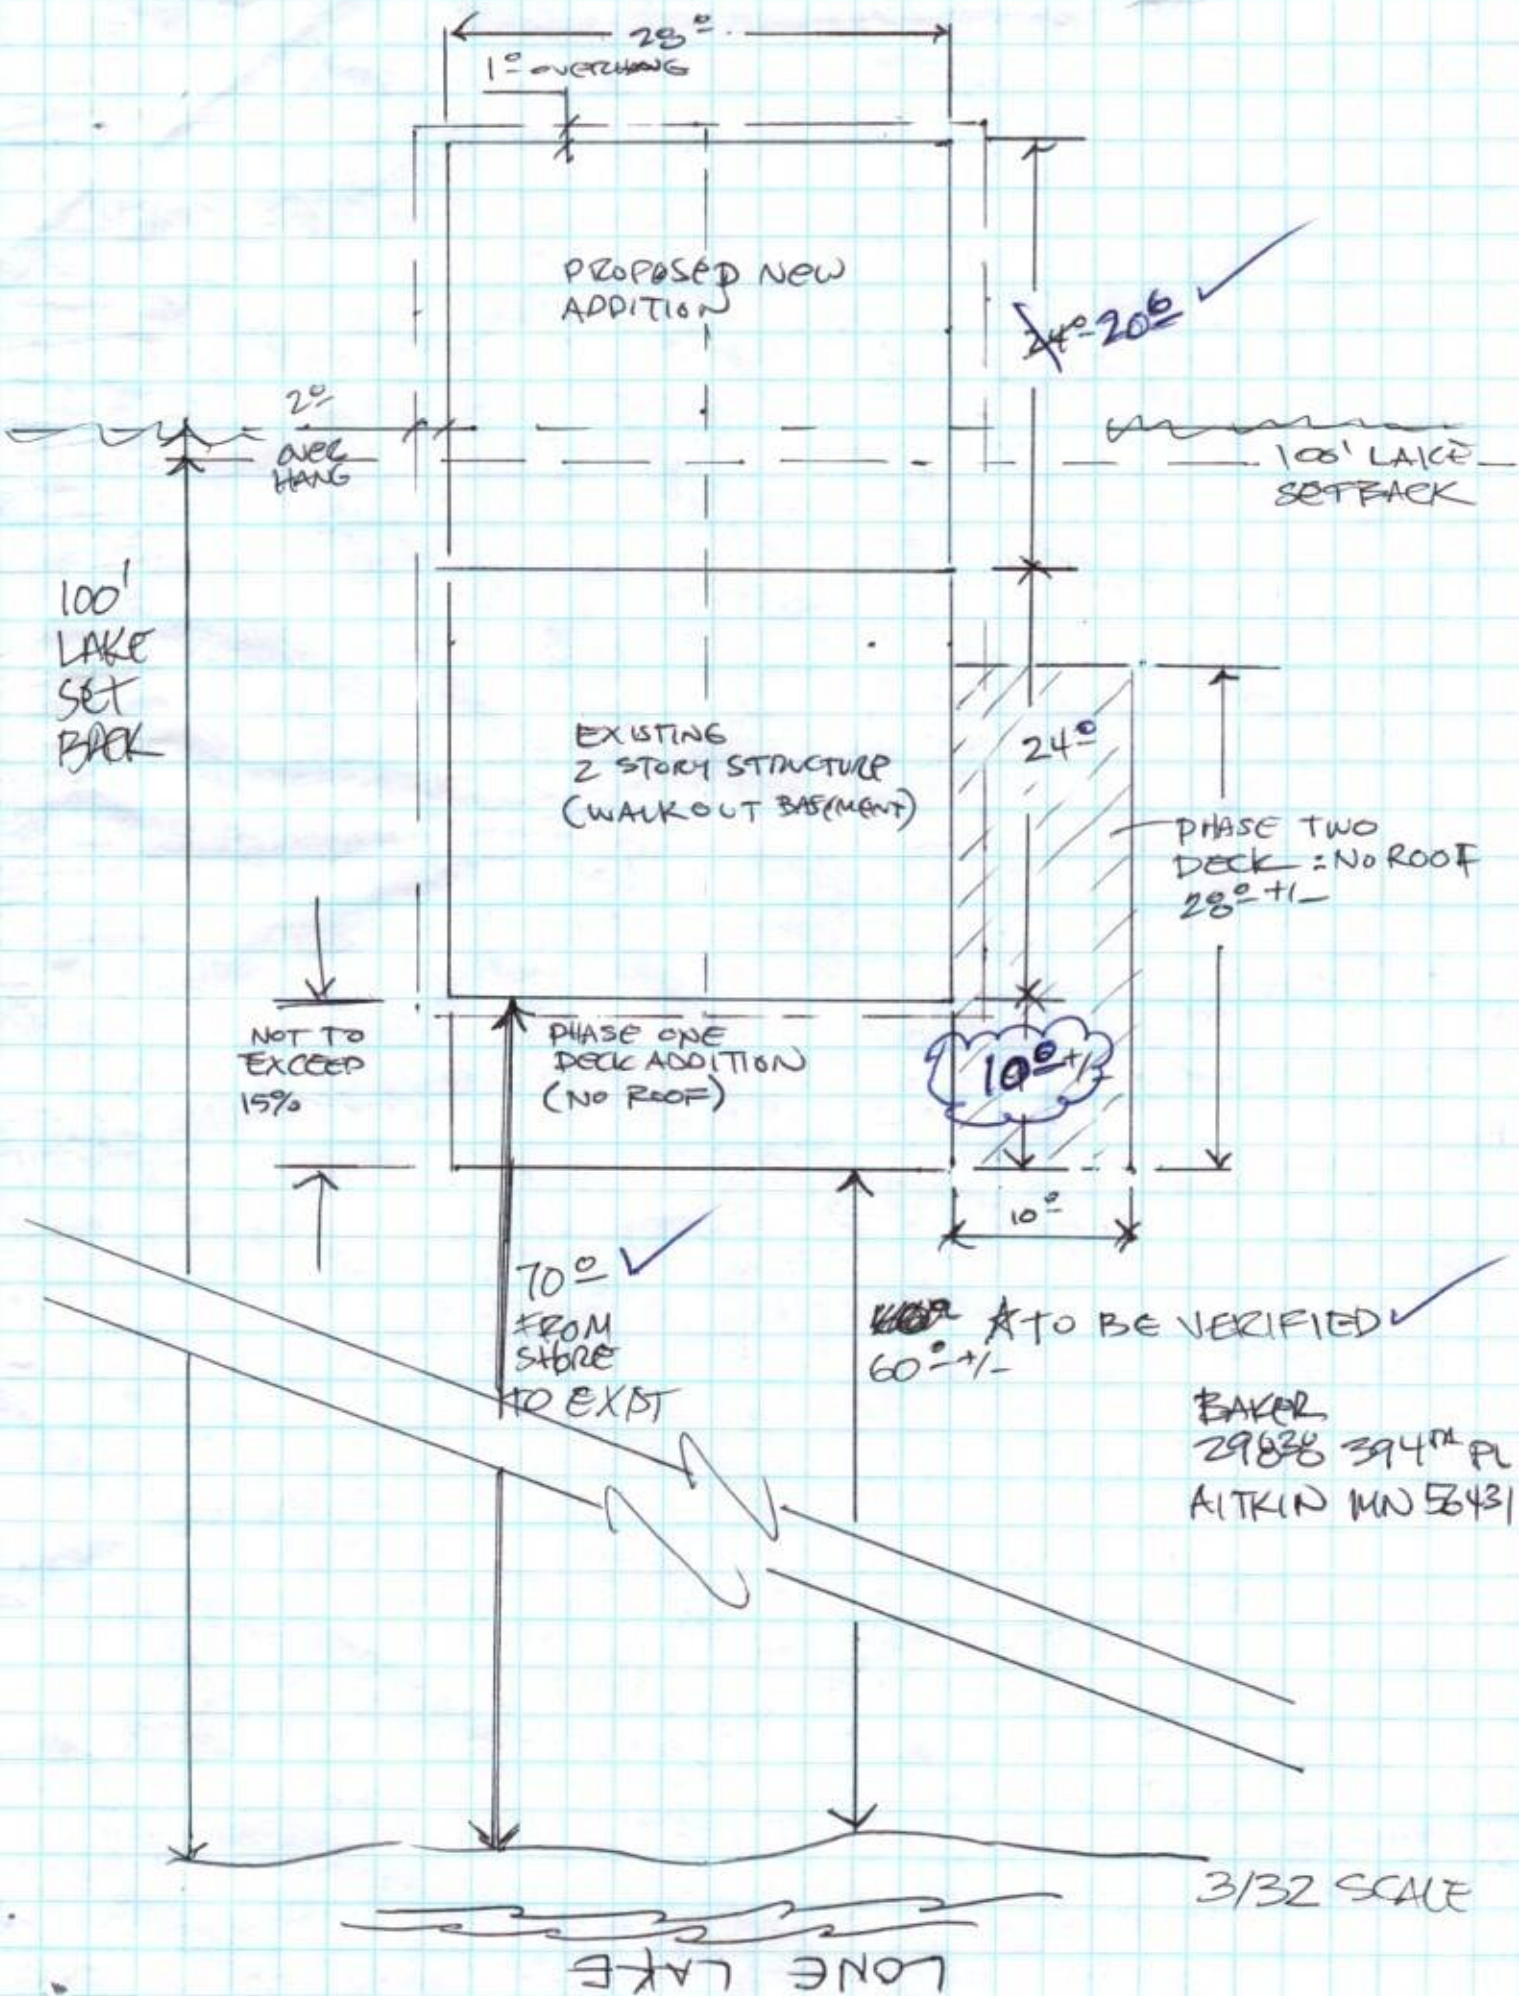 28º
1º OVERHANG
PROPOSED NEW
ADDITION
24º 20 6
2º
OVER
HANG
100' LAKE
SETBACK
100'
LAKE
SET
BACK
EXISTING
2 STORY STRUCTURE
(WALKOUT BASEMENT)
24º
PHASE TWO
DECK : NO ROOF
28º +/-
NOT TO
EXCEED
15%
PHASE ONE
DECK ADDITION
(NO ROOF)
10º +/-
10º
70º
FROM
SHORE
TO EXIST
TO BE VERIFIED
60º +/-
BAKER
29838 394TH PL
AITKIN MN 56431
3/32 SCALE
LONE LAKE